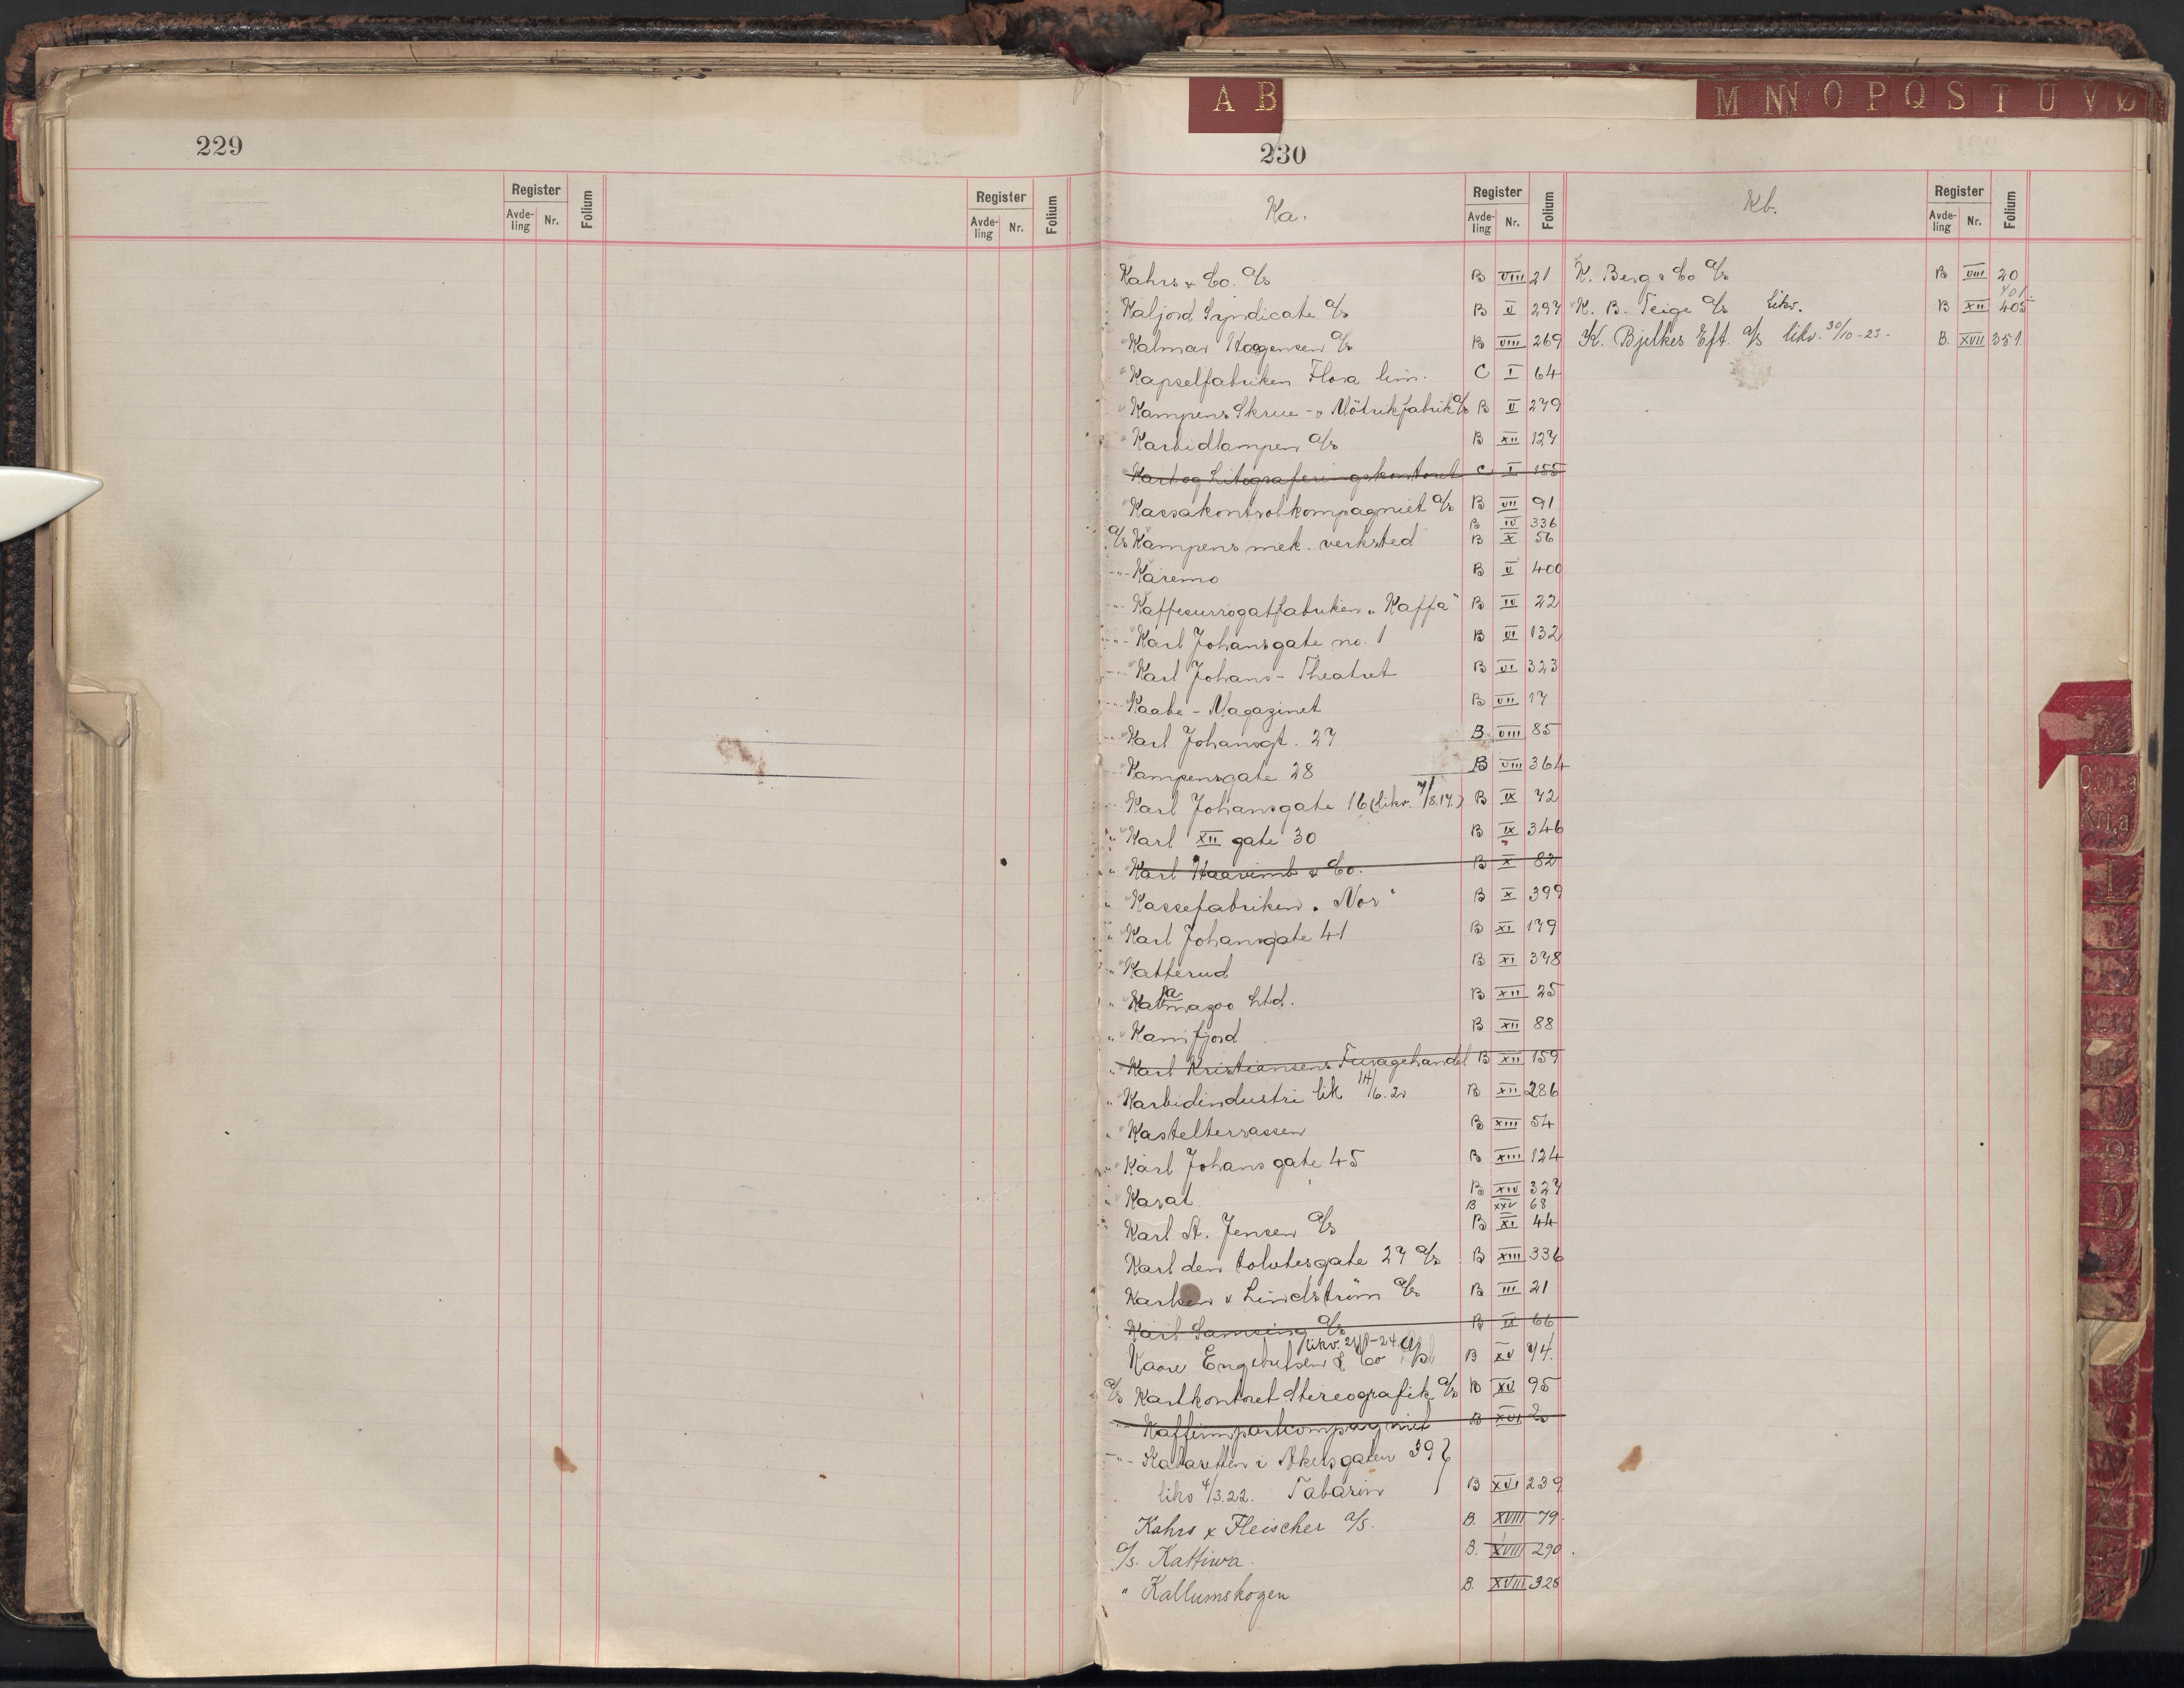 A B
M N N O P Q S T U V Ø
229
230
Register
Avde-
ling
Nr.
Folium
Register
Avde-
ling
Nr.
Folium
Ka.
Register
Avde-
ling
Nr.
Folium
Kb.
Register
Avde-
ling
Nr.
Folium
Kahrs & Co. A/s B VIII 21
Kaljord Syndicate A/s B V 297
Kalmar Haagensen A/s B VIII 269
Kapselfabriken Flora lim. C I 64
Kampens Skrue- & Mötrikfabrik A/s B V 279
Karbidlampen A/s B XII 127
Kart og Litograferingskontoret C I 155
Kassakontrolkompagniet A/s B VII 91
B IV 336
A/s Kampens mek. verksted B X 56
-"- Karemo B V 400
-"- Kaffesurrogatfabriken „Kaffa" B IV 22
-"- Karl Johansgate no. 1 B VI 132
-"- Karl Johans-Theatret B VI 323
-"- Kaabe-Magazinet B VII 17
-"- Karl Johansgt. 27 B VIII 85
-"- Kampensgate 28 B VIII 364
-"- Karl Johansgate 16 (likv. 7/8.17.) B IX 72
" Karl XII gate 30 B IX 346
" Karl Haavimb & Co. B X 82
" Kassefabriken „Nor" B X 399
" Karl Johansgate 41 B XI 179
" Katterud B XI 378
" Ltd. B XII 25
" Kamfjord B XII 88
" Karl Kristiansens Furagehandel B XII 159
" Karbidindustri lik 14/6.20 B XII 286
" Kastelterrassen B XIII 54
" Karl Johans gate 45 B XIII 124
" Karat B XIV 327
B XXV 68
" Karl St. Jensen A/s B XI 44
Karl den tolvtesgate 27 A/s B XIII 336
Karlsen & Lindström A/s B III 21
Karl Samsing A/s B IX 66
likv.
Kaare Engebretsen & Co A/s B XV 74.
A/s Kartkontoret Stereografik A/s B XV 95
-"- Kaffeimportcompagniet B XVI 20
-"- Kabaretten i Akersgaten 39
likv 4/3.22. Tabarin B XVI 239
Kahrs & Fleischer A/s. B. XVIII 79.
A/s. Kattiwa. B. XVIII 290.
" Kallumskogen B. XVIII 328
K. Berg & Co A/s B VIII 20
401.
K. B. Teige A/s Likv. B XII 405
K. Bjelkes Eft. A/s likv. 30/10-23- B. XVII 351.